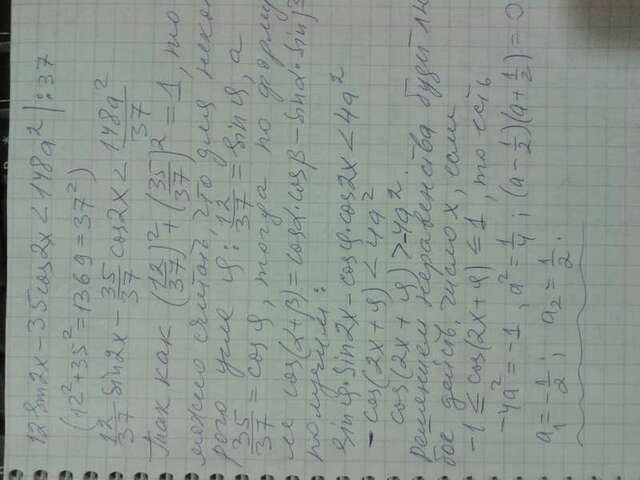 12 sin2x - 35cos2x < 148a² | : 37
(12² + 35² = 1369 = 37²)
12/37 sin2x - 35/37 cos2x < 148a²/37
Так как (12/37)² + (35/37)² = 1, то
можно считать, что для неко
рого угла φ: 12/37 = sin φ, а
35/37 = cos φ, тогда по форму
ле cos(α+β) = cosα·cosβ - sinα·sinβ
получим:
sinφ·sin2x - cosφ·cos2x < 4a²
- cos(2x + φ) < 4a²
cos(2x + φ) > -4a².
Решением неравенства будет лю
бое действ. число x, если
-1 ≤ cos(2x+φ) ≤ 1, то есть
-4a² = -1, a² = 1/4; (a - 1/2)(a + 1/2) = 0
a₁ = -1/2; a₂ = 1/2.